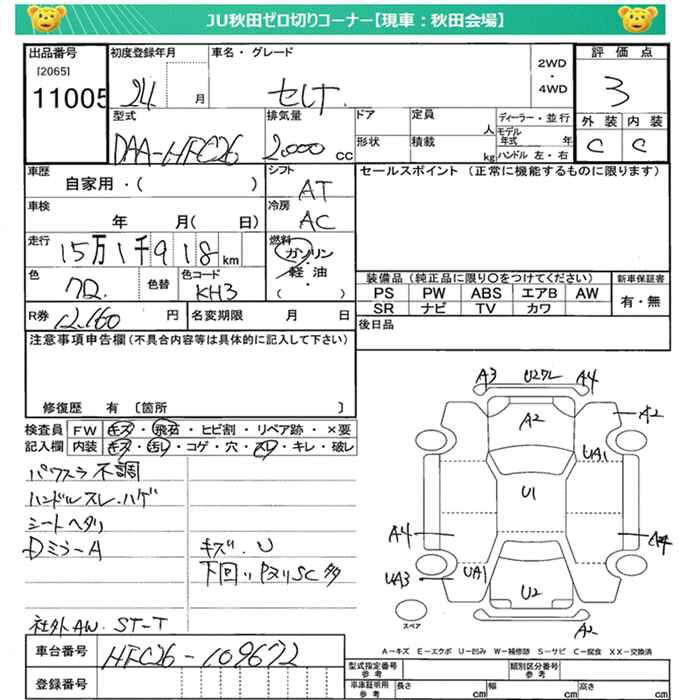 JU秋田ゼロ切りコーナー【現車：秋田会場】
出品番号 初度登録年月 車名・グレード 評価点
[2065]
11005 24 月 セレナ 2WD ・ 4WD 3
型式 排気量 ドア 定員 人 ディーラー・並行 外装 内装
DAA-HFC26 2.000 cc 形状 積載 kg モデル年式 年 ハンドル 左・右 C C
車歴 シフト セールスポイント（正常に機能するものに限ります）
自家用・（ ） AT
車検 冷房
年 月（ 日） AC
走行 燃料
15万1千918km ガソリン・軽油・（ ）
色 色替 色コード
クロ KH3
装備品（純正品に限り○をつけてください） 新車保証書
PS PW ABS エアB AW 有・無
SR ナビ TV カワ
R券 12.160 円 名変期限 月 日
後日品
注意事項申告欄（不具合内容等は具体的に記入して下さい）
修復歴 有 〔箇所 〕
検査員 FW キズ・飛石・ヒビ割・リペア跡・×要
記入欄 内装 キズ・汚レ・コゲ・穴・スレ・キレ・破レ
パワスラ不調
ハンドルスレ.ハゲ
シートヘタリ
Dミラ-A キズ.U
下回リPヌリSC多
社外AW. ST-T
A3 U2ワレ A4
A2 A2
UA1
U1
A4 A4
UA3 UA1
U2
スペア A2
A－キズ E－エクボ U－凹み W－補修跡 S－サビ C－腐食 XX－交換済
車台番号 HFC26-109672
登録番号
型式指定番号 参考 類別区分番号 参考
車庫証明用 参考 長さ cm 幅 cm 高さ cm